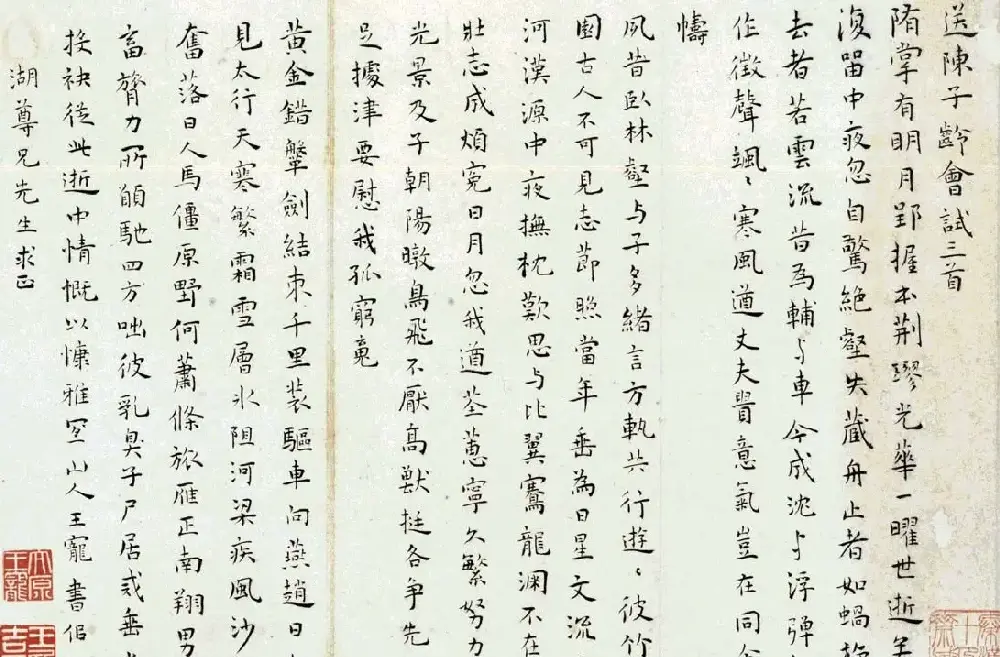 送陳子齡會試三首
隋掌有明月郢握本荆璆光華一曜世逝
湏留中夜忽自驚絶壑失藏舟止者如蝸
去者若雲流昔為輔与車今成沈与浮彈
作徵聲颯〻寒風遒丈夫貴意氣豈在同衾
幬
夙昔臥林壑与子多緒言方軌共行遊〻彼竹
園古人不可見志節照當年垂為日星文流
河漢源中夜撫枕歎思与比翼騫龍淵不在
壯志成煩寃日月忽我遒荃蕙寧久繁努力
光景及子朝陽暾鳥飛不厭高獸挺各争先
足據津要慰我孤窮
黃金錯鞶劍結束千里裝驅車向燕趙日
見太行天寒繁霜雪層冰阻河梁疾風沙
奮落日人馬僵原野何蕭條旅雁正南翔男
畜膂力所願馳四方咄彼乳臭子尸居或垂
接袂從此逝中情慨以慷雅宜山人王寵書
湖尊兄先生求正
太原王寵